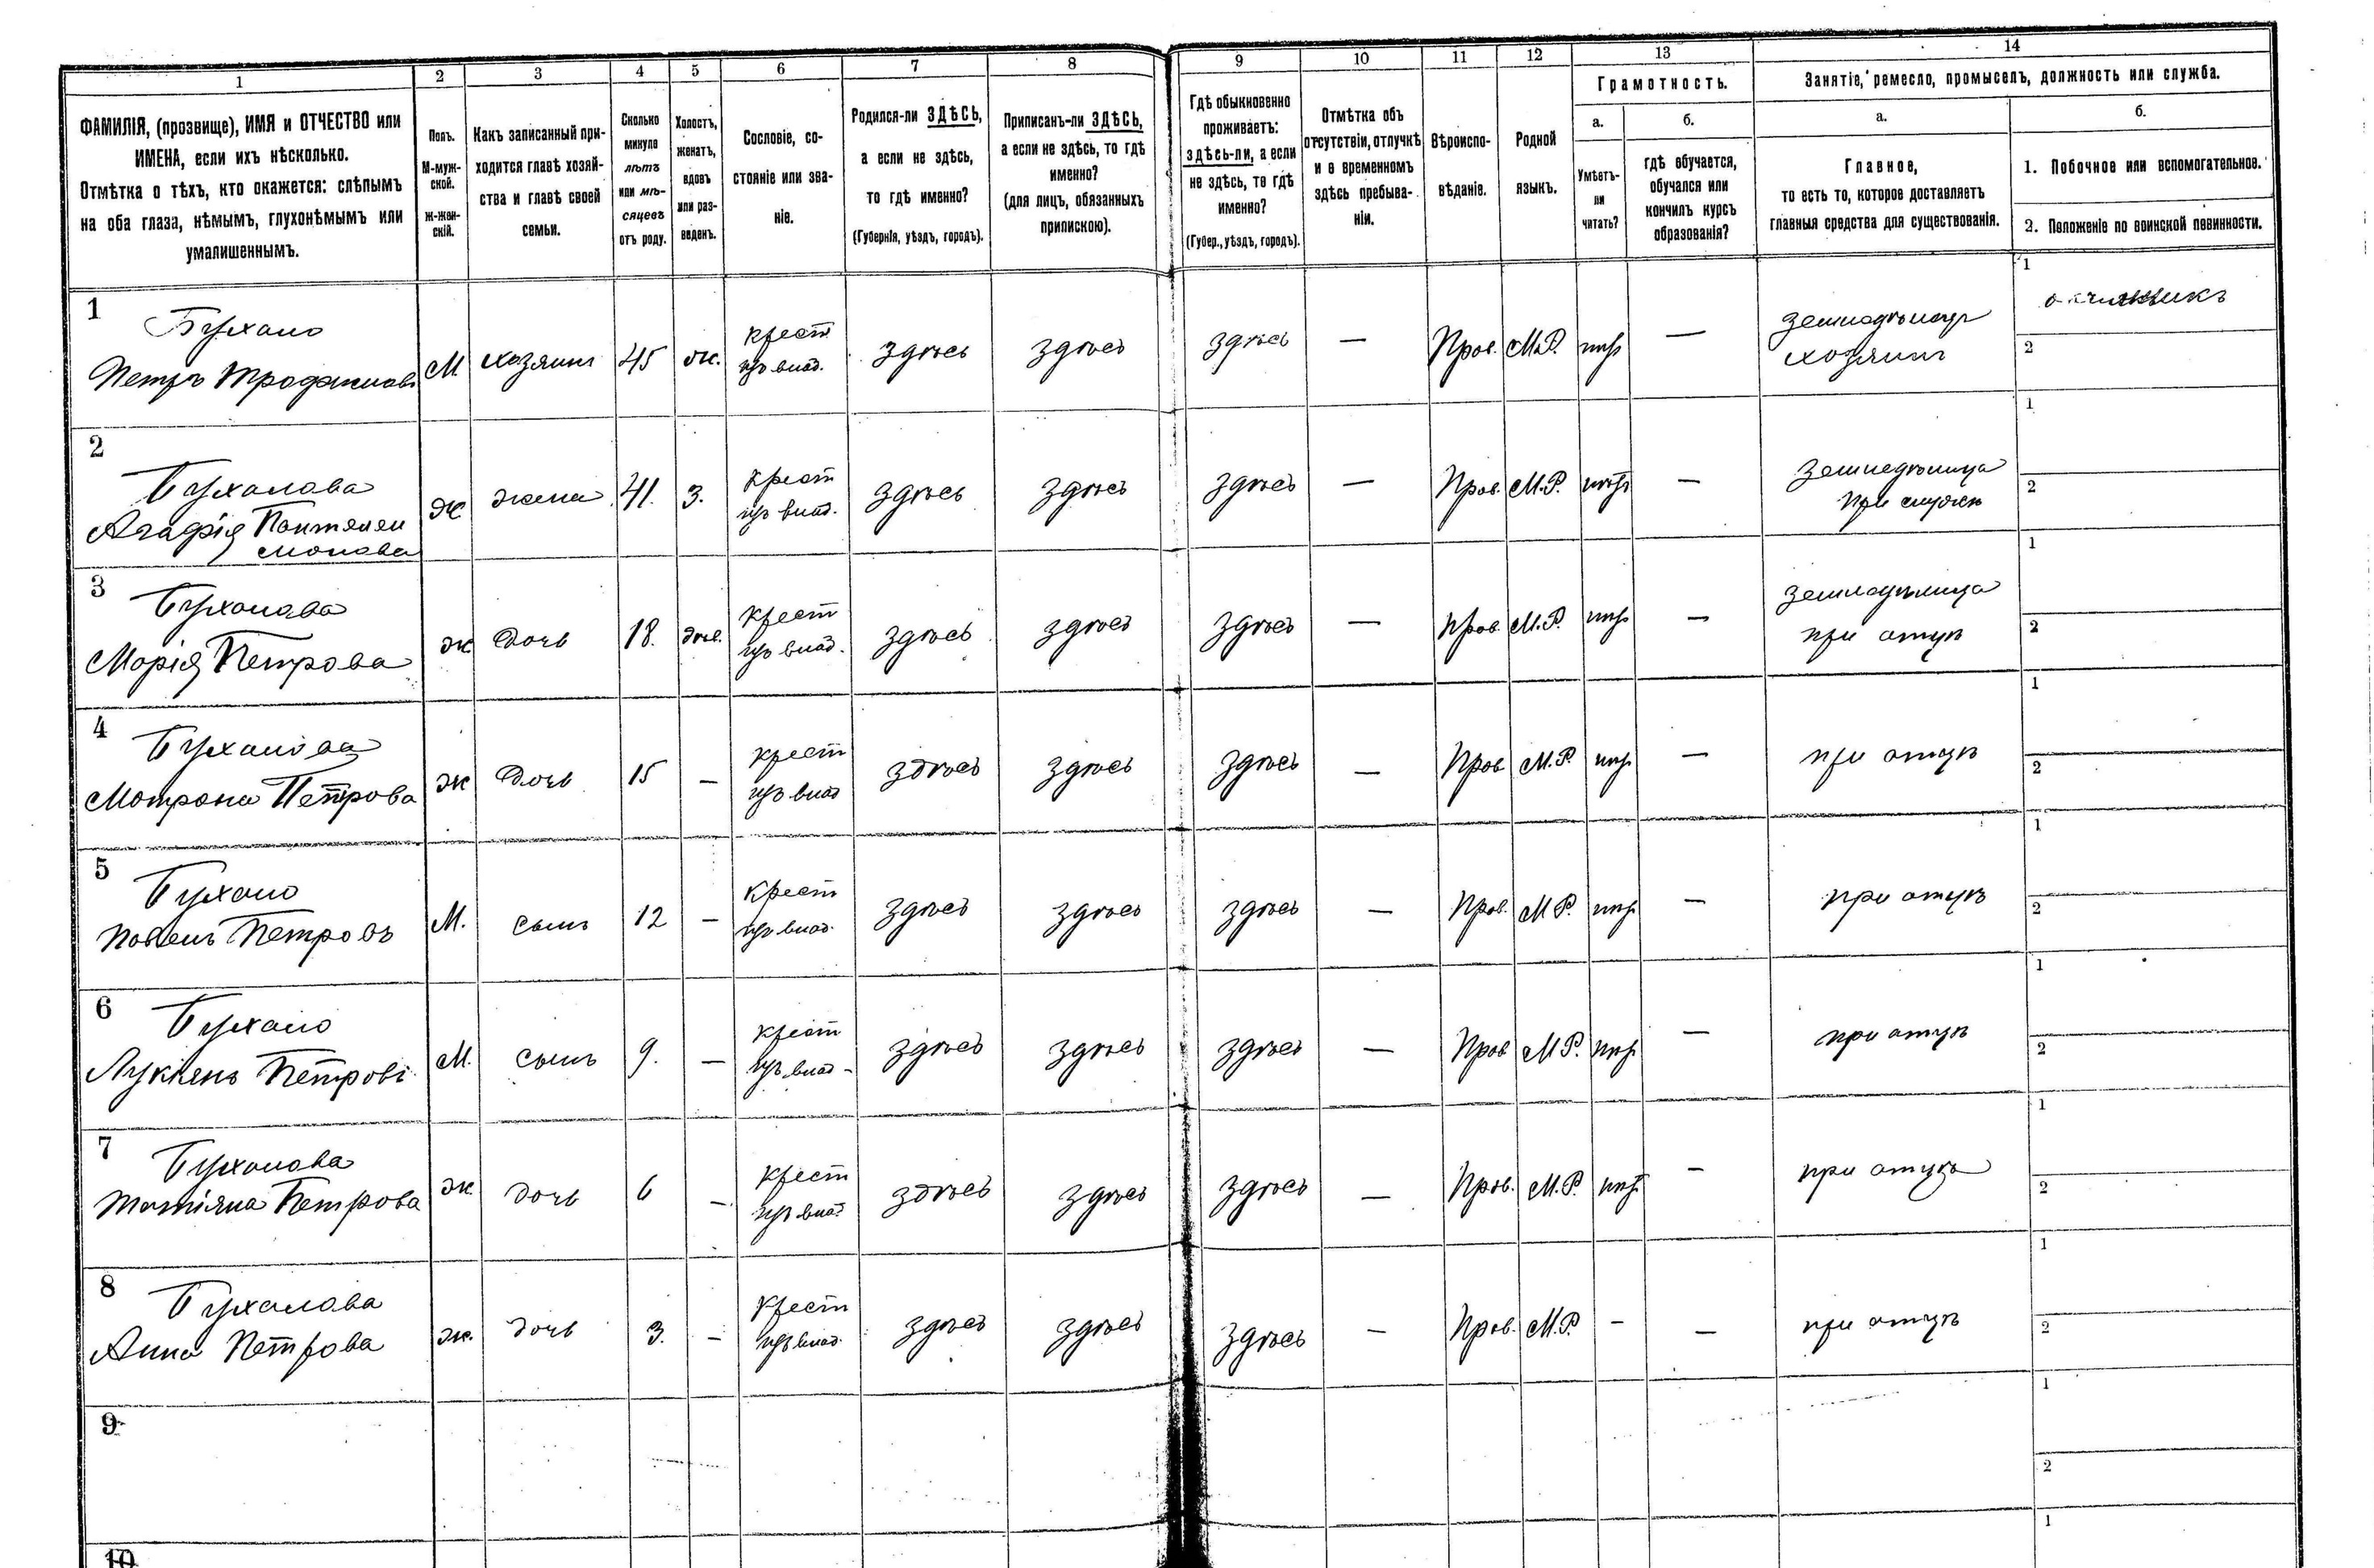 1
2
3
4
5
6
7
8
9
10
11
12
13
14
ФАМИЛІЯ, (прозвище), ИМЯ и ОТЧЕСТВО или
ИМЕНА, если ихъ нѣсколько.
Отмѣтка о тѣхъ, кто окажется: слѣпымъ
на оба глаза, нѣмымъ, глухонѣмымъ или
умалишеннымъ.
Полъ.
М-муж-
ской.
Ж-жен-
скій.
Какъ записанный при-
ходится главѣ хозяй-
ства и главѣ своей
семьи.
Сколько
минуло
лѣтъ
или мѣ-
сяцевъ
отъ роду.
Холостъ,
женатъ,
вдовъ
или раз-
веденъ.
Сословіе, со-
стояніе или зва-
ніе.
Родился-ли ЗДѢСЬ,
а если не здѣсь,
то гдѣ именно?
(Губернія, уѣздъ, городъ).
Приписанъ-ли ЗДѢСЬ,
а если не здѣсь, то гдѣ
именно?
(для лицъ, обязанныхъ
припискою).
Гдѣ обыкновенно
проживаетъ:
здѣсь-ли, а если
не здѣсь, то гдѣ
именно?
(Губер., уѣздъ, городъ).
Отмѣтка объ
отсутствіи, отлучкѣ
и о временномъ
здѣсь пребыва-
ніи.
Вѣроиспо-
вѣданіе.
Родной
языкъ.
Грамотность.
а.
Умѣетъ-
ли
читать?
б.
гдѣ обучается,
обучался или
кончилъ курсъ
образованія?
Занятіе, ремесло, промыселъ, должность или служба.
а.
Главное,
то есть то, которое доставляетъ
главныя средства для существованія.
б.
1. Побочное или вспомогательное.
2. Положеніе по воинской повинности.
1
Петръ
М хозяинъ 45 ж. крест. изъ влад. здѣсь здѣсь здѣсь — Пров. М.Р. —
хозяинъ
1
2
2
Агафія
ж жена 41. З. крест изъ влад. здѣсь здѣсь здѣсь — Пров. М.Р. —
1
2
3
Марія Петрова
ж Дочь 18. крест изъ влад. здѣсь здѣсь здѣсь — Пров. М.Р. —
1
2
4
Мотрона Петрова
ж Дочь 15 — крест изъ влад здѣсь здѣсь здѣсь — Пров М.Р. —
при отцѣ
1
2
5
Павелъ Петровъ
М. сынъ 12 — крест изъ влад. здѣсь здѣсь здѣсь — Пров. М.Р. —
при отцѣ
1
2
6
Петровъ
М. сынъ 9. — крест изъ влад здѣсь здѣсь здѣсь — Пров М.Р. —
при отцѣ
1
2
7
Татіяна Петрова
ж. дочь 6 — крест изъ влад. здѣсь здѣсь здѣсь — Пров. М.Р. —
при отцѣ
1
2
8
Анна Петрова
ж. дочь 3. — крест изъ влад. здѣсь здѣсь здѣсь — Пров. М.Р. — —
при отцѣ
1
2
9
1
2
10
1